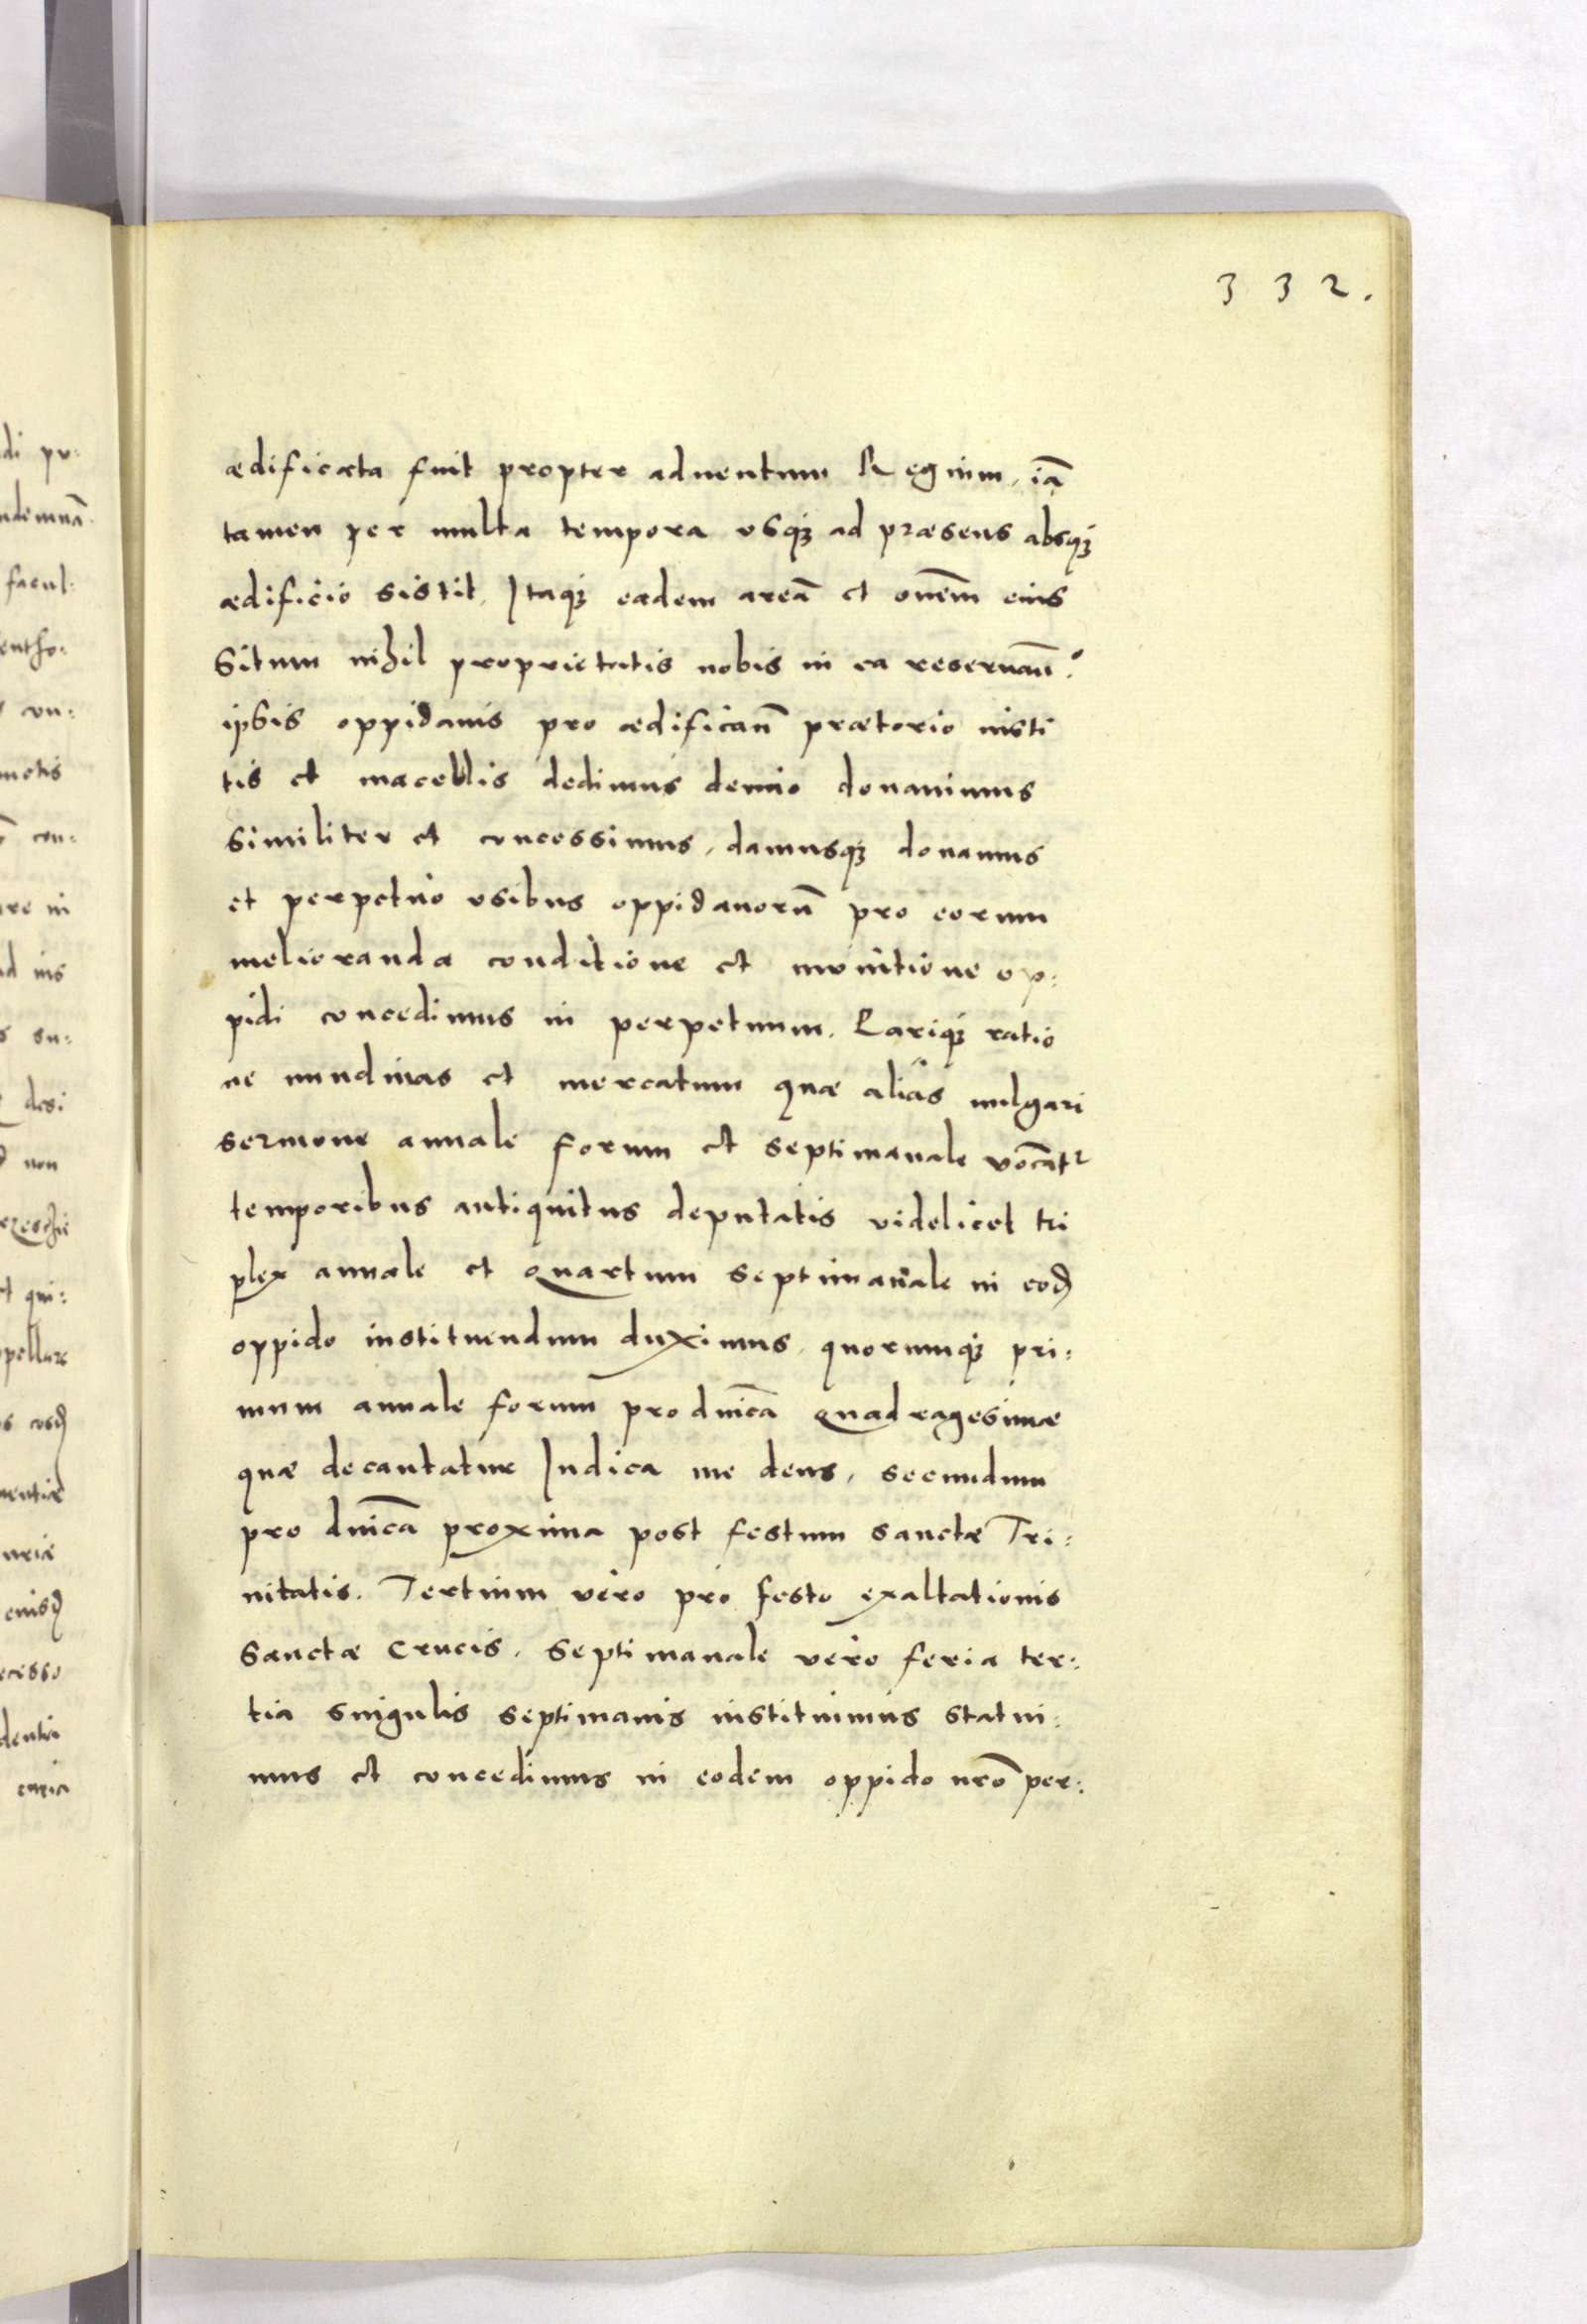 332.
ædificata fuit propter aduentum Regium, iã
tamen per multa tempora usq3 ad præsens absq3
ædificio sistit, Itaq3 eadem areã et omnẽm eius
situm nihil proprietatis nobis in ea reseruañ:
ipsis oppidanis pro ædificañ prætorio insti
tis et macellis dedimus demio donauimus
similiter et concessimus, damusq3 donamus
et perpetuo usibus oppidanorũ pro eorum
melioranda conditione et munitione op:
pidi concedimus in perpetuum. Pariq3 ratio
ne nundinas et mercatum quæ aliàs uulgari
sermone annale forum et septimanale vocãtr
temporibus antiquitus deputatis videlicet tri
plex annale et quartum septimanale in eod
oppido instituendum duximus, quorumq3 pri:
mum annale forum pro dnicã quadragesimæ
quæ decantatur Iudica me deus, secundum
pro dnicã proxima post festum sanctæ Tri:
nitatis. Tertium vero pro festo exaltationis
sanctæ crucis, septimanale vero feria ter:
tia singulis septimanis instituimus statui:
mus et concedimus in eodem oppido nrõ per:
di pu:
ndemnã
facul:
con:
motis
con:
re in
d ius
s su:
desi
non
t qui:
ppellare
s eiusd
mentiæ
uriæ
eiusd
ecisso
denti
curia